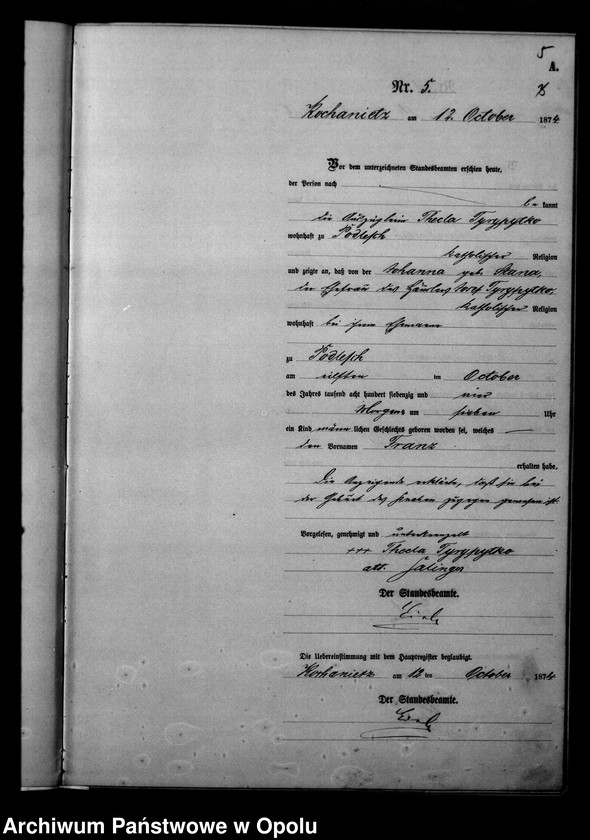 5
A.
Nr. 5.
Kochanietz am 12 October 1874
Vor dem unterzeichneten Standesbeamten erschien heute,
der Person nach
be kannt
die Auszüglerin Thecla Tyrypytko
wohnhaft zu Podlesch
katholischer Religion
und zeigte an, daß von der Johanna geb.
der Ehefrau des Häuslers Josef Tyrypytko,
katholischer Religion
wohnhaft bei ihrem Ehemanne
zu Podlesch
am eilften ten October
des Jahres tausend acht hundert siebenzig und vier
Morgens um sieben Uhr
ein Kind männ lichen Geschlechts geboren worden sei, welches
den Vornamen Franz
erhalten habe.
Die Anzeigende erklärte, daß sie bei
der Geburt des Kindes zugegen gewesen ist.
Vorgelesen, genehmigt und unterkreuzt
+++ Thecla Tyrypytko
att.
Der Standesbeamte.
Die Uebereinstimmung mit dem Hauptregister beglaubigt.
Kochanietz am 12 ten October 1874
Der Standesbeamte.
Archiwum Państwowe w Opolu